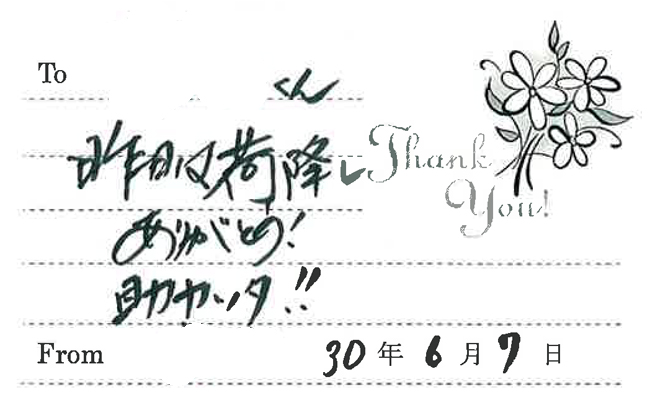 To
くん
昨日は荷降し
Thank
You!
ありがとう!
助かッタ!!
From 30年6月7日